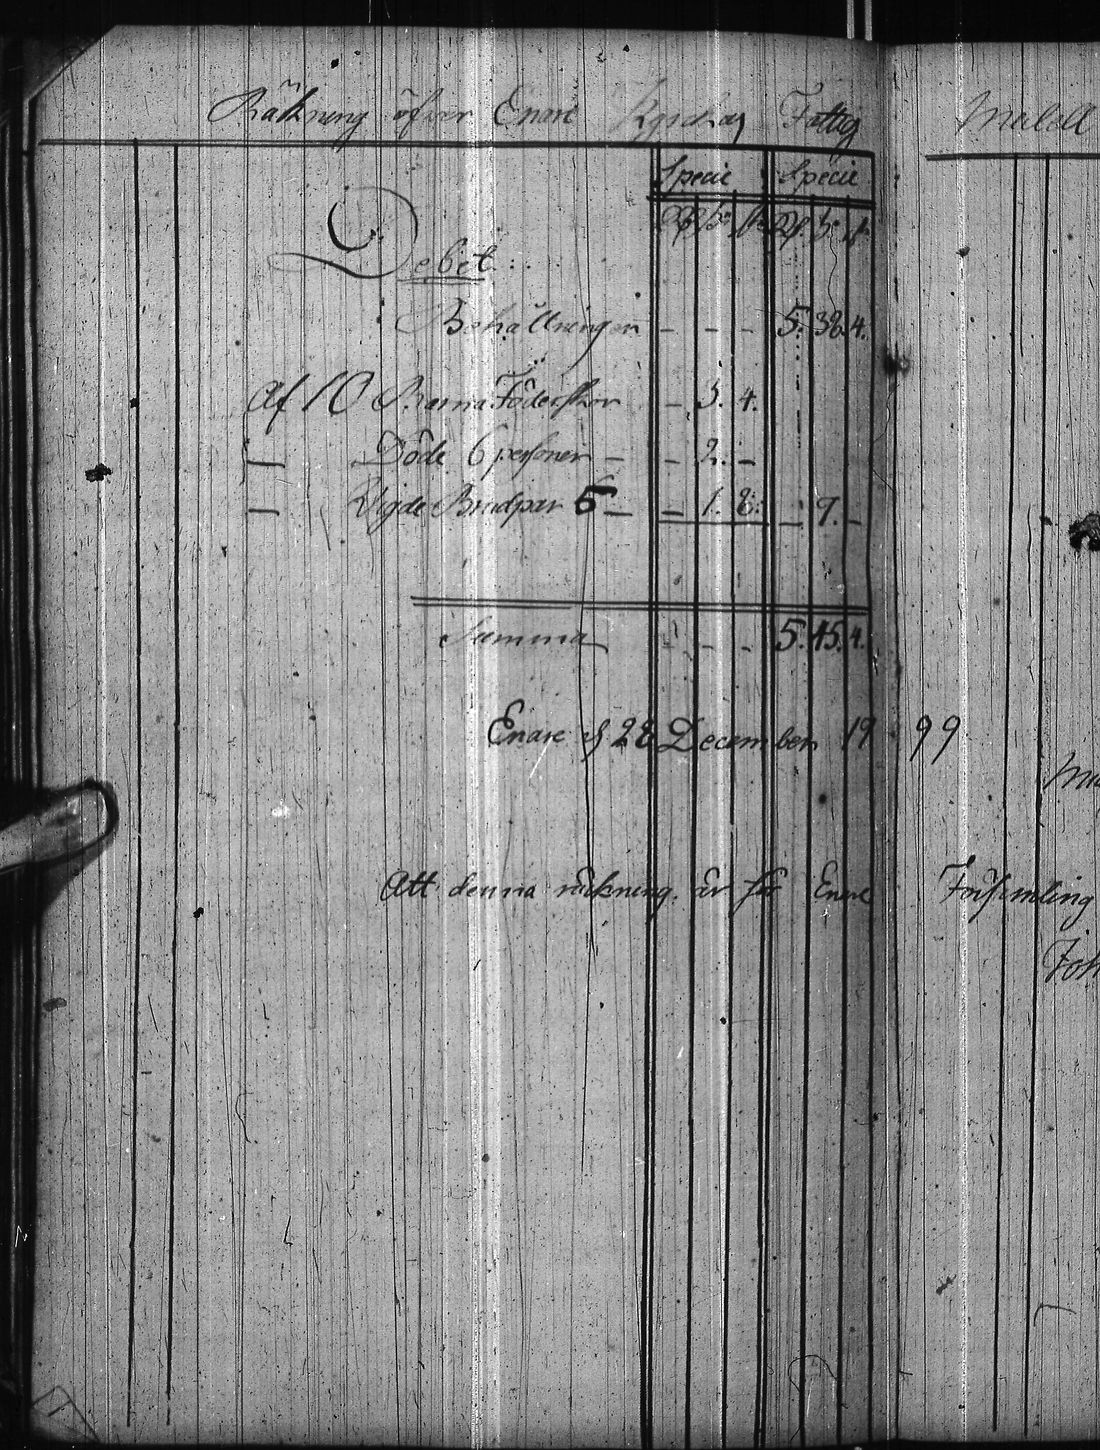 Räkning öfver Enare Kyrckas Fattig Medell
Specie Specie
Rd. ß. r. Rd. ß. r.
Debet....
Behållningen - - - 5. 38. 4.
Af 10 Barna Föderskor - 3. 4.
— Döde 6 personer - - 2. -
— Vigde Brudpar 5 - - 1. 8. - 7. -
Summa - - - 5. 45. 4.
Enare d 28 December 1799
Att denna räkning är för Enare Församling